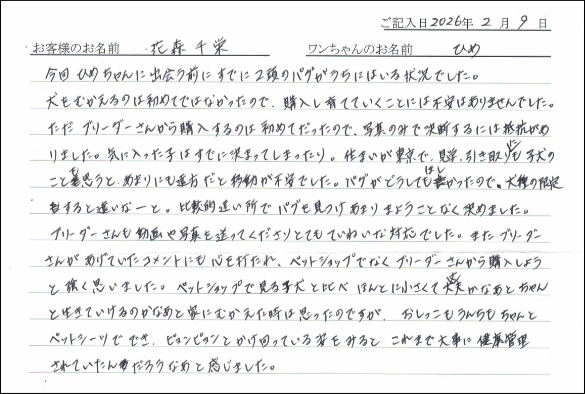 ご記入日2026年 2月 9日
お客様のお名前 花森千栄 ワンちゃんのお名前 ひめ
今回 ひめちゃんに出会う前にすでに2頭のパグがうちにはいる状況でした。
犬をむかえるのは初めてではなかったので、購入し育てていくことには不安はありませんでした。
ただ ブリーダーさんから購入するのは初めてだったので、写真のみで決断するには抵抗があ
りました。気に入った子はすでに決まってしまったり。住まいが東京で、見学、引き取りにも子犬の
ことを思うと、あまりにも遠方だと移動が不安でした。パグがどうしてもほしかったので、犬種の限定
をすると遠いなーと。比較的近い所でパグを見つけあまりまようことなく決めました。
ブリーダーさんも動画や写真を送ってくださりとてもていねいな対応でした。またブリーダー
さんがあげていたコメントにも心を打たれ、ペットショップでなくブリーダーさんから購入しよう
と強く思いました。ペットショップで見る子犬と比べ ほんとに小さくて 大丈夫かなあと ちゃん
と生きていけるのかなあと家にむかえた時は思ったのですが、おしっこもうんちもちゃんと
ペットシーツで でき、ピョンピョンとかけ回っている姿をみると これまで大事に 健康管理
されていたんだろうなあと感じました。